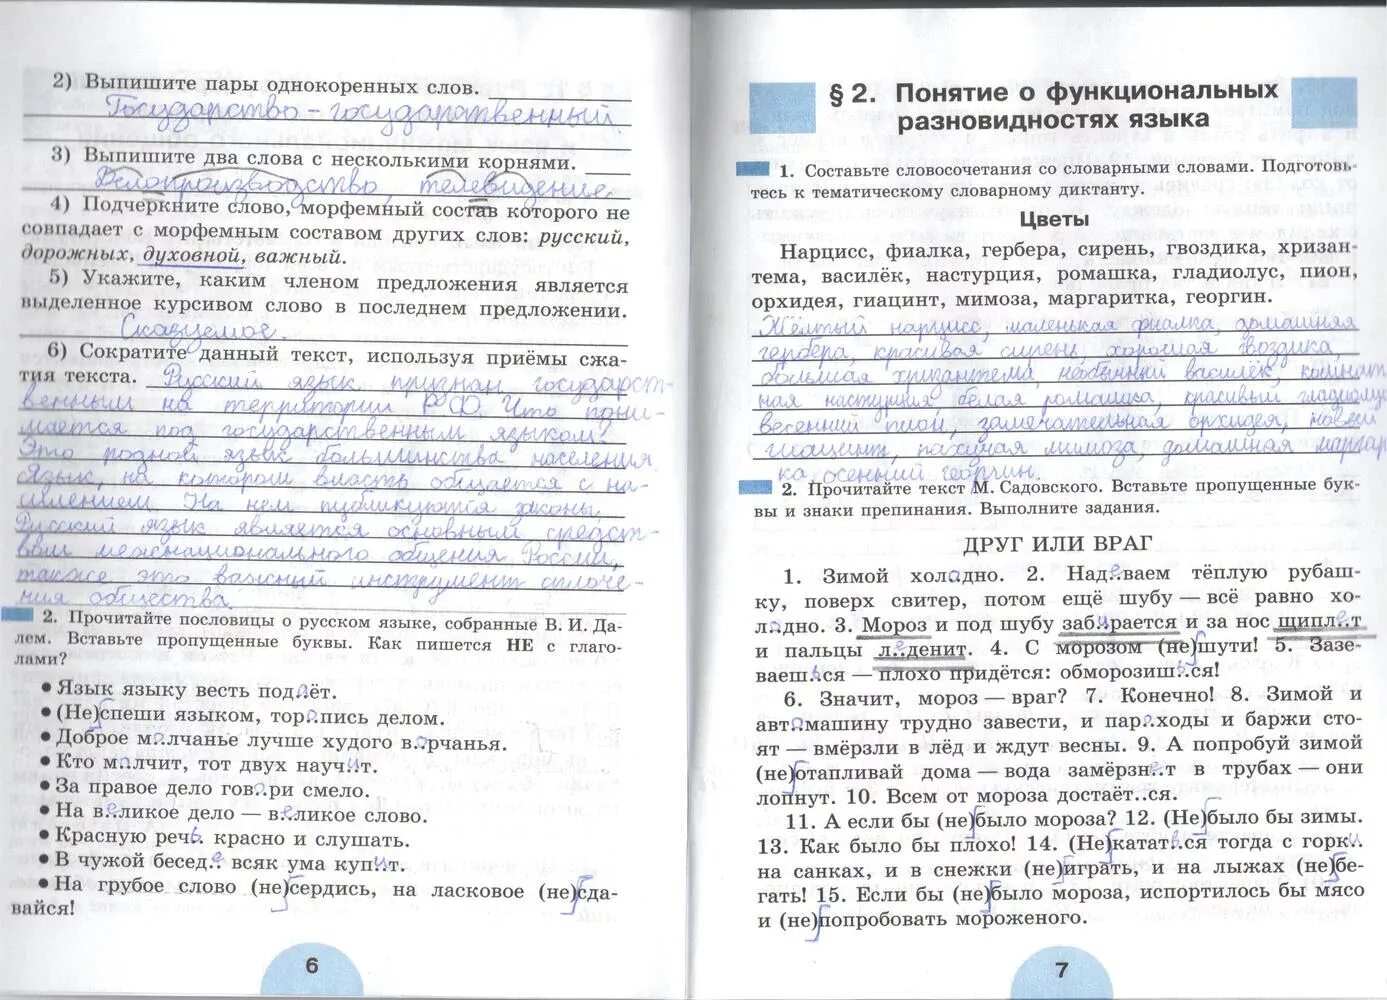 2) Выпишите пары однокоренных слов.
Государство – государственный
3) Выпишите два слова с несколькими корнями.
Делопроизводство, телевидение.
4) Подчеркните слово, морфемный состав которого не
совпадает с морфемным составом других слов: русский,
дорожных, духовной, важный.
5) Укажите, каким членом предложения является
выделенное курсивом слово в последнем предложении.
Сказуемое.
6) Сократите данный текст, используя приёмы сжа-
тия текста. Русский язык признан государст-
венным на территории РФ. Что пони-
мается под государственным языком?
Это родной язык большинства населения.
Язык, на котором власть общается с на-
селением. На нём публикуются законы.
Русский язык является основным средст-
вом межнационального общения России,
также это важный инструмент сплоче-
ния общества.
2. Прочитайте пословицы о русском языке, собранные В. И. Да-
лем. Вставьте пропущенные буквы. Как пишется НЕ с глаго-
лами?
• Язык языку весть подаёт.
• (Не)спеши языком, торопись делом.
• Доброе молчанье лучше худого ворчанья.
• Кто молчит, тот двух научит.
• За правое дело говори смело.
• На великое дело — великое слово.
• Красную речь красно и слушать.
• В чужой беседе всяк ума купит.
• На грубое слово (не)сердись, на ласковое (не)сда-
вайся!
6
§ 2. Понятие о функциональных
разновидностях языка
1. Составьте словосочетания со словарными словами. Подготовь-
тесь к тематическому словарному диктанту.
Цветы
Нарцисс, фиалка, гербера, сирень, гвоздика, хризан-
тема, василёк, настурция, ромашка, гладиолус, пион,
орхидея, гиацинт, мимоза, маргаритка, георгин.
Жёлтый нарцисс, маленькая фиалка, домашняя
гербера, красивая сирень, хорошая гвоздика,
большая хризантема, необычный василёк, комнат
ная настурция, белая ромашка, красивый гладиолус
весенний пион, замечательная орхидея, новый
гиацинт, пахучая мимоза, домашняя маргар
ка, осенний георгин.
2. Прочитайте текст М. Садовского. Вставьте пропущенные бук-
вы и знаки препинания. Выполните задания.
ДРУГ ИЛИ ВРАГ
1. Зимой холадно. 2. Над.е.ваем тёплую рубаш-
ку, поверх свитер, потом ещё шубу — всё равно хо-
лодно. 3. Мороз и под шубу забирается и за нос щипл.е.т
и пальцы л.е.денит. 4. С морозом (не)шути! 5. Зазе-
ваешься — плохо придётся: обморозишься!
6. Значит, мороз — враг? 7. Конечно! 8. Зимой и
автомашину трудно завести, и пароходы и баржи сто-
ят — вмёрзли в лёд и ждут весны. 9. А попробуй зимой
(не)отапливай дома — вода замёрзн.е.т в трубах — они
лопнут. 10. Всем от мороза достаёт..ся.
11. А если бы (не)было мороза? 12. (Не)было бы зимы.
13. Как было бы плохо! 14. (Не)катат.ь.ся тогда с горк.и.
на санках, и в снежки (не)играть, и на лыжах (не)бе-
гать! 15. Если бы (не)было мороза, испортилось бы мясо
и (не)попробовать мороженого.
7